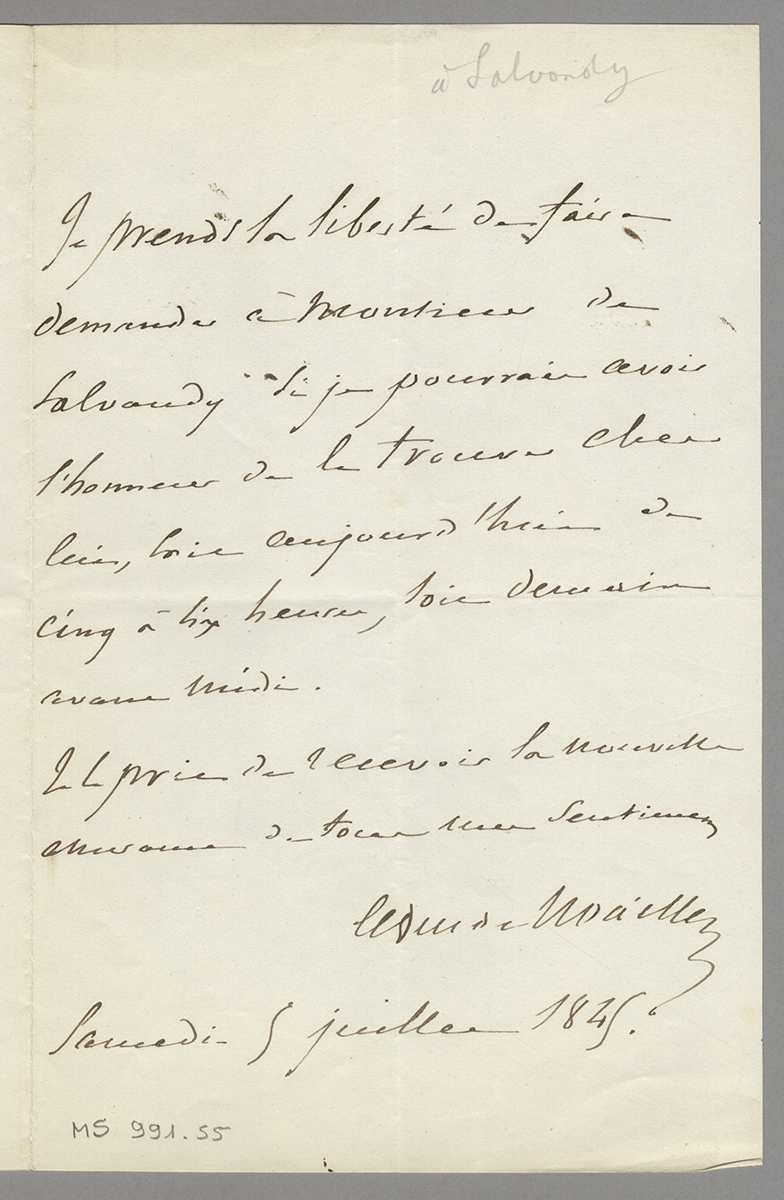 à Salvandy
Je prends la liberté de faire
demander à Monsieur de
Salvandy si je pourrais avoir
l'honneur de le trouver chez
lui, soit aujourd'hui de
cinq à six heures, soit demain
avant midi.
Je le prie de recevoir la nouvelle
assurance de tous mes sentimens
le duc de Noailles
Samedi 5 juillet 1845.
MS 991.55